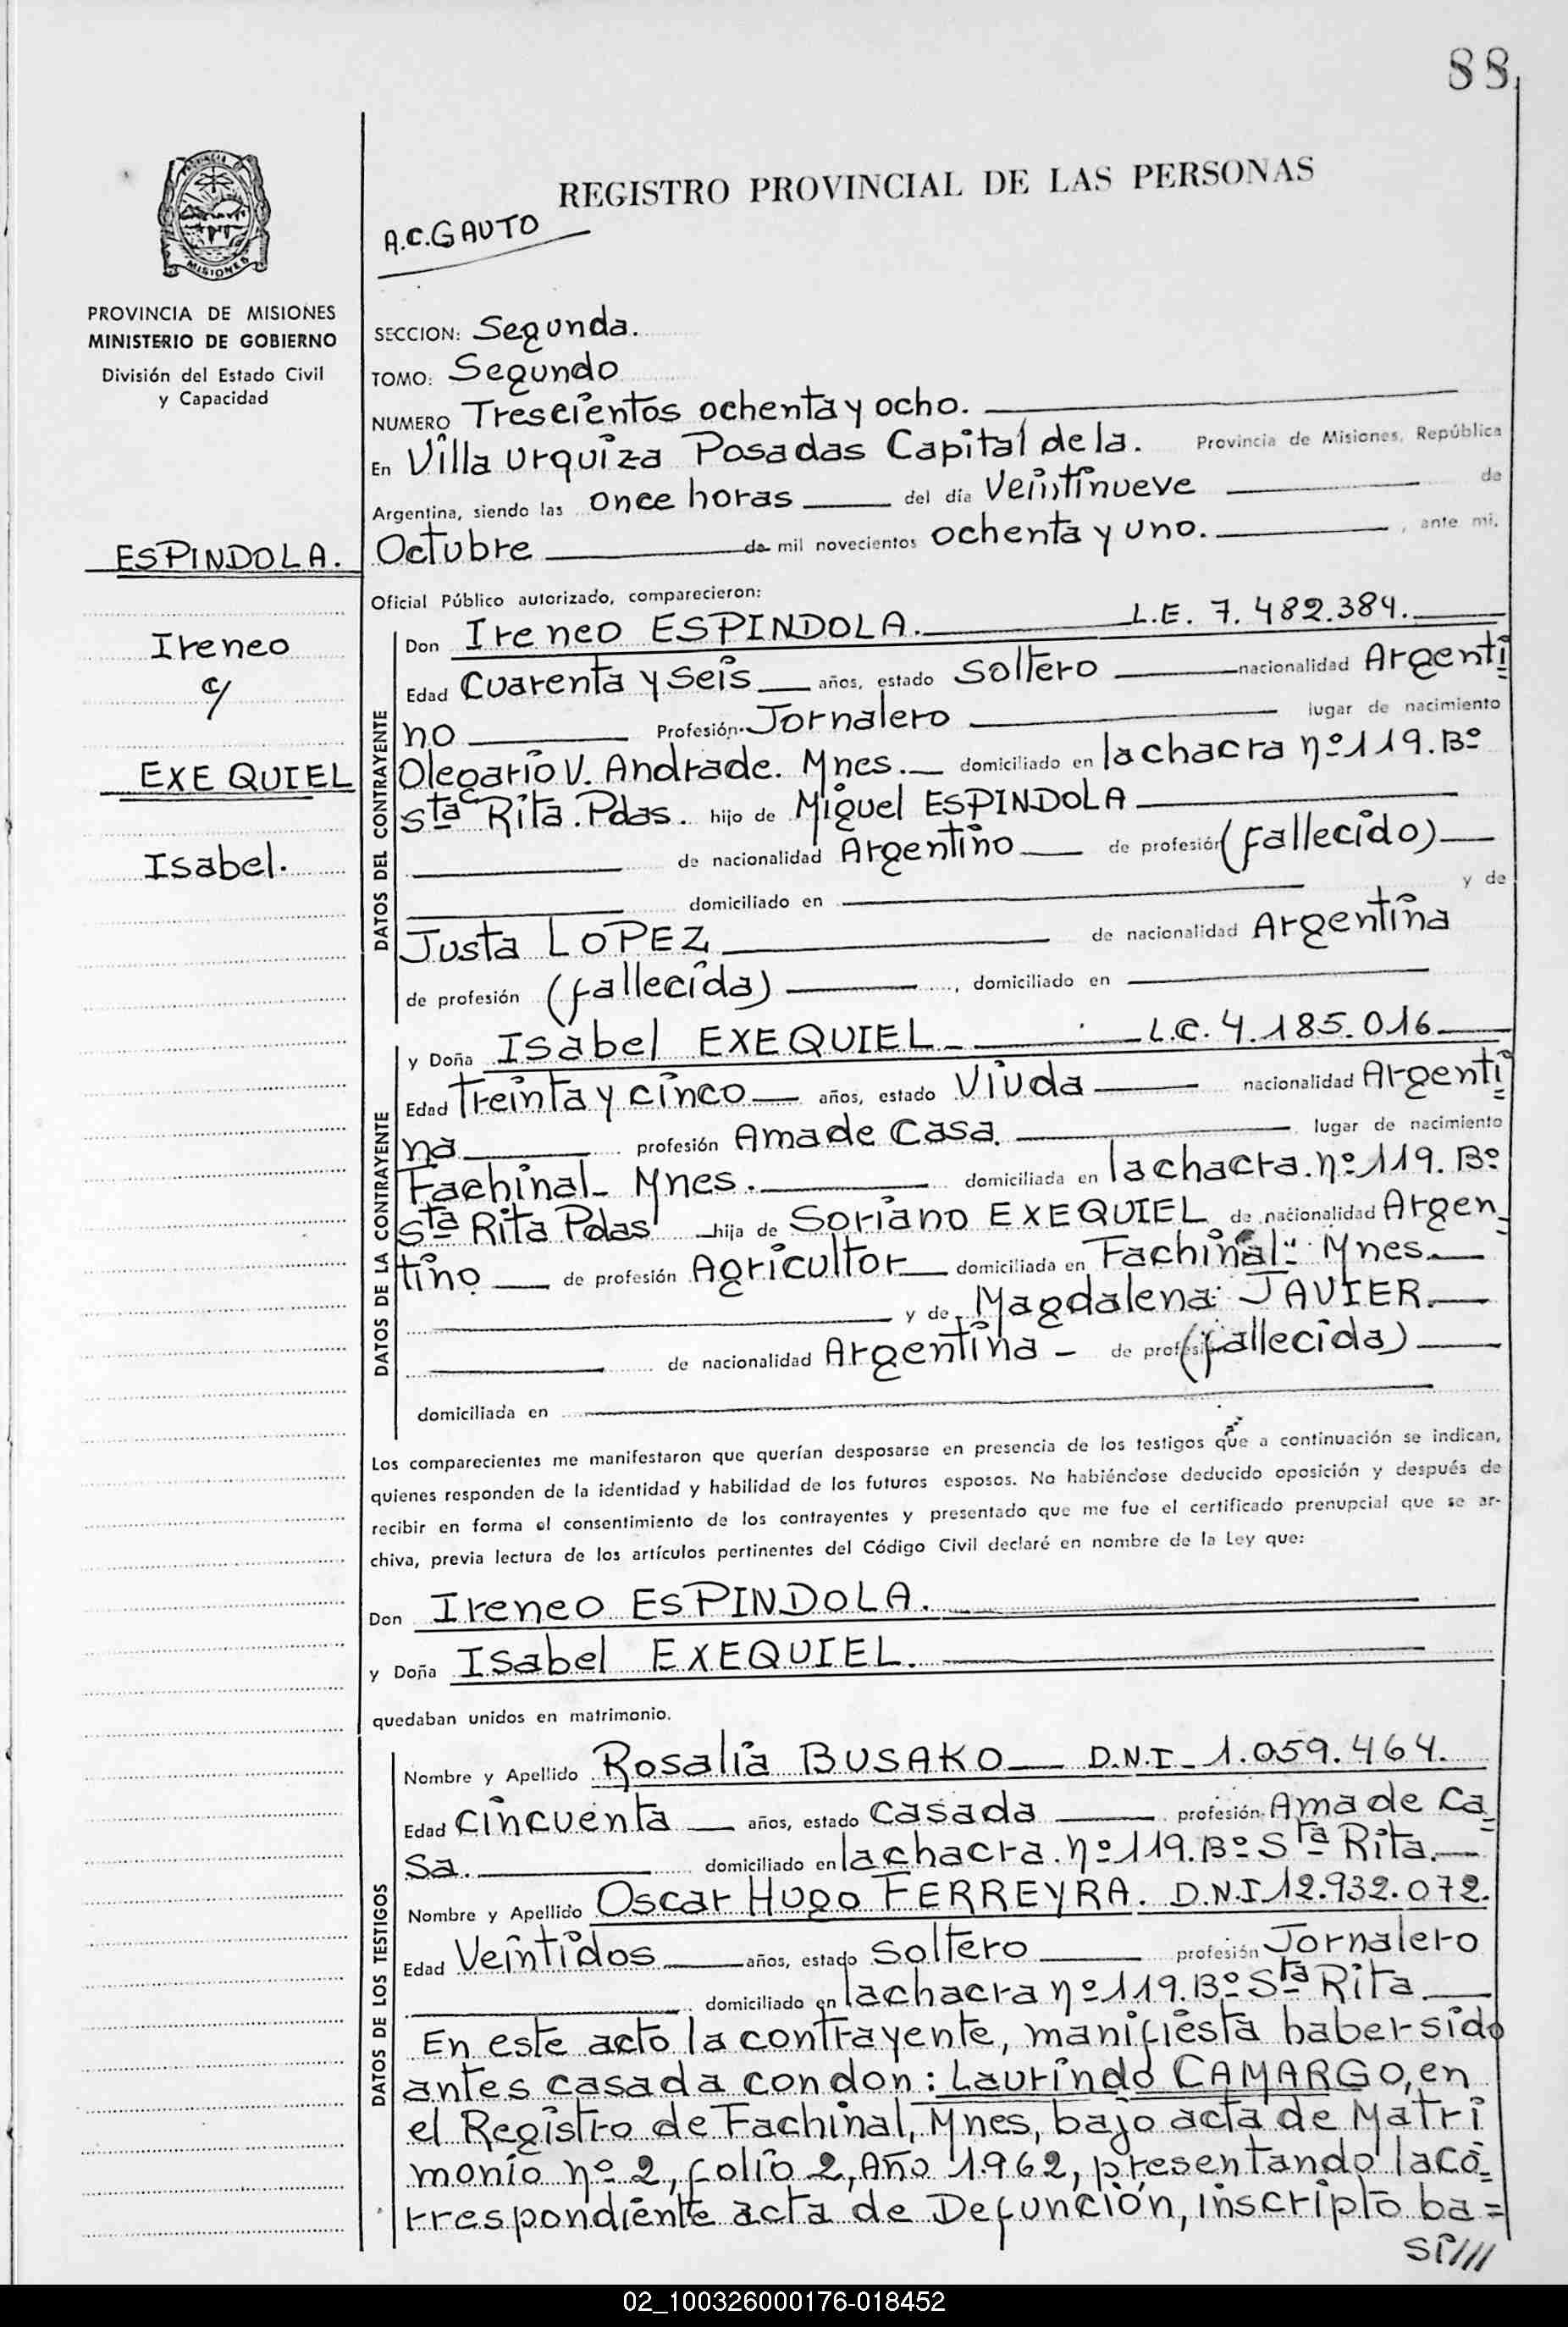 88
PROVINCIA
MISIONES
PROVINCIA DE MISIONES
MINISTERIO DE GOBIERNO
División del Estado Civil
y Capacidad
ESPINDOLA.
Ireneo
c/
EXEQUIEL
Isabel.
REGISTRO PROVINCIAL DE LAS PERSONAS
A.C.GAUTO
SECCION: Segunda.
TOMO: Segundo
NUMERO Trescientos ochenta y ocho.
En Villa Urquiza Posadas Capital de la. Provincia de Misiones, República
Argentina, siendo las once horas del día Veintinueve de
Octubre de mil novecientos ochenta y uno. , ante mi,
Oficial Público autorizado, comparecieron:
DATOS DEL CONTRAYENTE
Don Ireneo ESPINDOLA. L.E. 7.482.384.
Edad Cuarenta y seis años, estado Soltero nacionalidad Argenti
no Profesión Jornalero lugar de nacimiento
Olegario V. Andrade. Mnes. domiciliado en la chacra nº 119. Bº
Sta Rita. Pdas. hijo de Miguel ESPINDOLA
de nacionalidad Argentino de profesión (fallecido)
domiciliado en y de
Justa LOPEZ de nacionalidad Argentina
de profesión (fallecida) , domiciliado en
DATOS DE LA CONTRAYENTE
y Doña Isabel EXEQUIEL. L.C. 4.185.016
Edad Treinta y cinco años, estado Viuda nacionalidad Argenti
na profesión Ama de Casa. lugar de nacimiento
Fachinal- Mnes. domiciliada en la chacra. nº 119. Bº
Sta Rita Pdas hija de Soriano EXEQUIEL de nacionalidad Argen
tino de profesión Agricultor domiciliada en Fachinal- Mnes.
y de Magdalena JAVIER.
de nacionalidad Argentina - de profesión (fallecida)
domiciliada en
Los comparecientes me manifestaron que querían desposarse en presencia de los testigos que a continuación se indican,
quienes responden de la identidad y habilidad de los futuros esposos. No habiéndose deducido oposición y después de
recibir en forma el consentimiento de los contrayentes y presentado que me fue el certificado prenupcial que se ar-
chiva, previa lectura de los artículos pertinentes del Código Civil declaré en nombre de la Ley que:
Don Ireneo ESPINDOLA.
y Doña Isabel EXEQUIEL.
quedaban unidos en matrimonio.
DATOS DE LOS TESTIGOS
Nombre y Apellido Rosalia BUSAKO D.N.I. 1.059.464.
Edad Cincuenta años, estado Casada profesión Ama de Ca=
sa. domiciliado en la chacra. nº 119. Bº Sta Rita.
Nombre y Apellido Oscar Hugo FERREYRA. D.N.I 12.932.072.
Edad Veintidos años, estado Soltero profesión Jornalero
domiciliado en la chacra nº 119. Bº Sta Rita
En este acto la contrayente, manifiesta haber sido
antes casada con don: Laurindo CAMARGO, en
el Registro de Fachinal, Mnes, bajo acta de Matri
monio nº 2, folio 2, Año 1.962, presentando la co=
rrespondiente acta de Defunción, inscripto ba=
si///
02_100326000176-018452